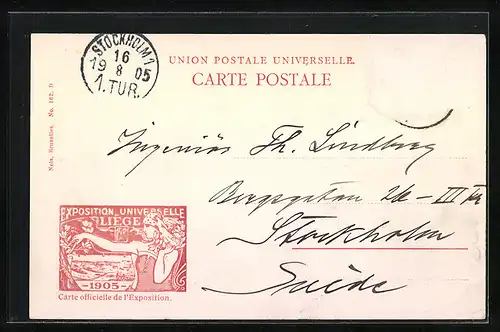 STOCKHOLM 1
16
19 8 05
1.TUR.
UNION POSTALE UNIVERSELLE.
CARTE POSTALE
Nels, Bruxelles. No. 162. D
Ingeniör Th. Lindberg
Stockholm
Suède
EXPOSITION UNIVERSELLE
LIEGE
-1905-
Carte officielle de l'Exposition.